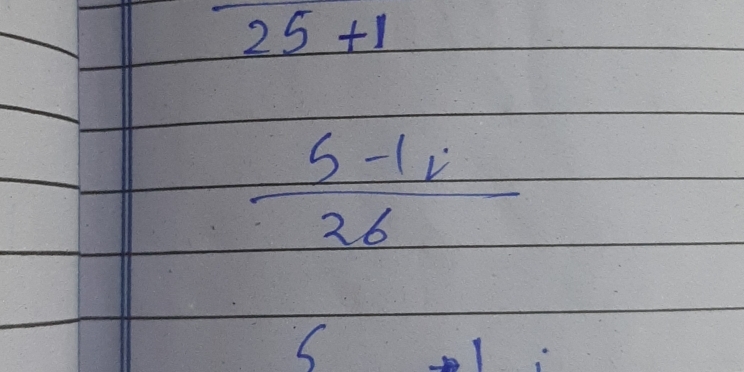 25 +1
5 -1 i
26
5 1 i